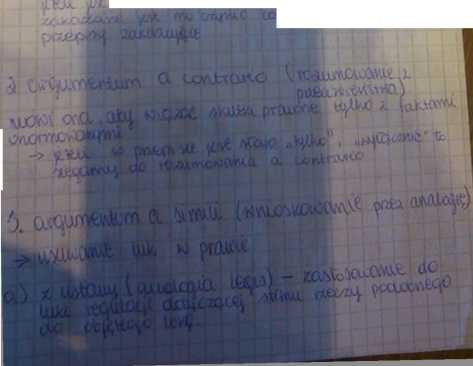 zakazane jest to
przepisy zakazujące
2. argumentum a contrario (rozumowanie z
przeciwieństwa)
mówi ona, aby wiązać skutki prawne tylko z faktami
unormowanymi
→ jeżeli w przepisie jest słowo "tylko", "wyłącznie" to
sięgamy do rozumowania a contrario
3. argumentum a simili (wnioskowanie przez analogię)
→ usuwanie luk w prawie
a) z ustawy (analogia legis) – zastosowanie do
luki regulacji dotyczącej stanu rzeczy podobnego
do objętego luką.